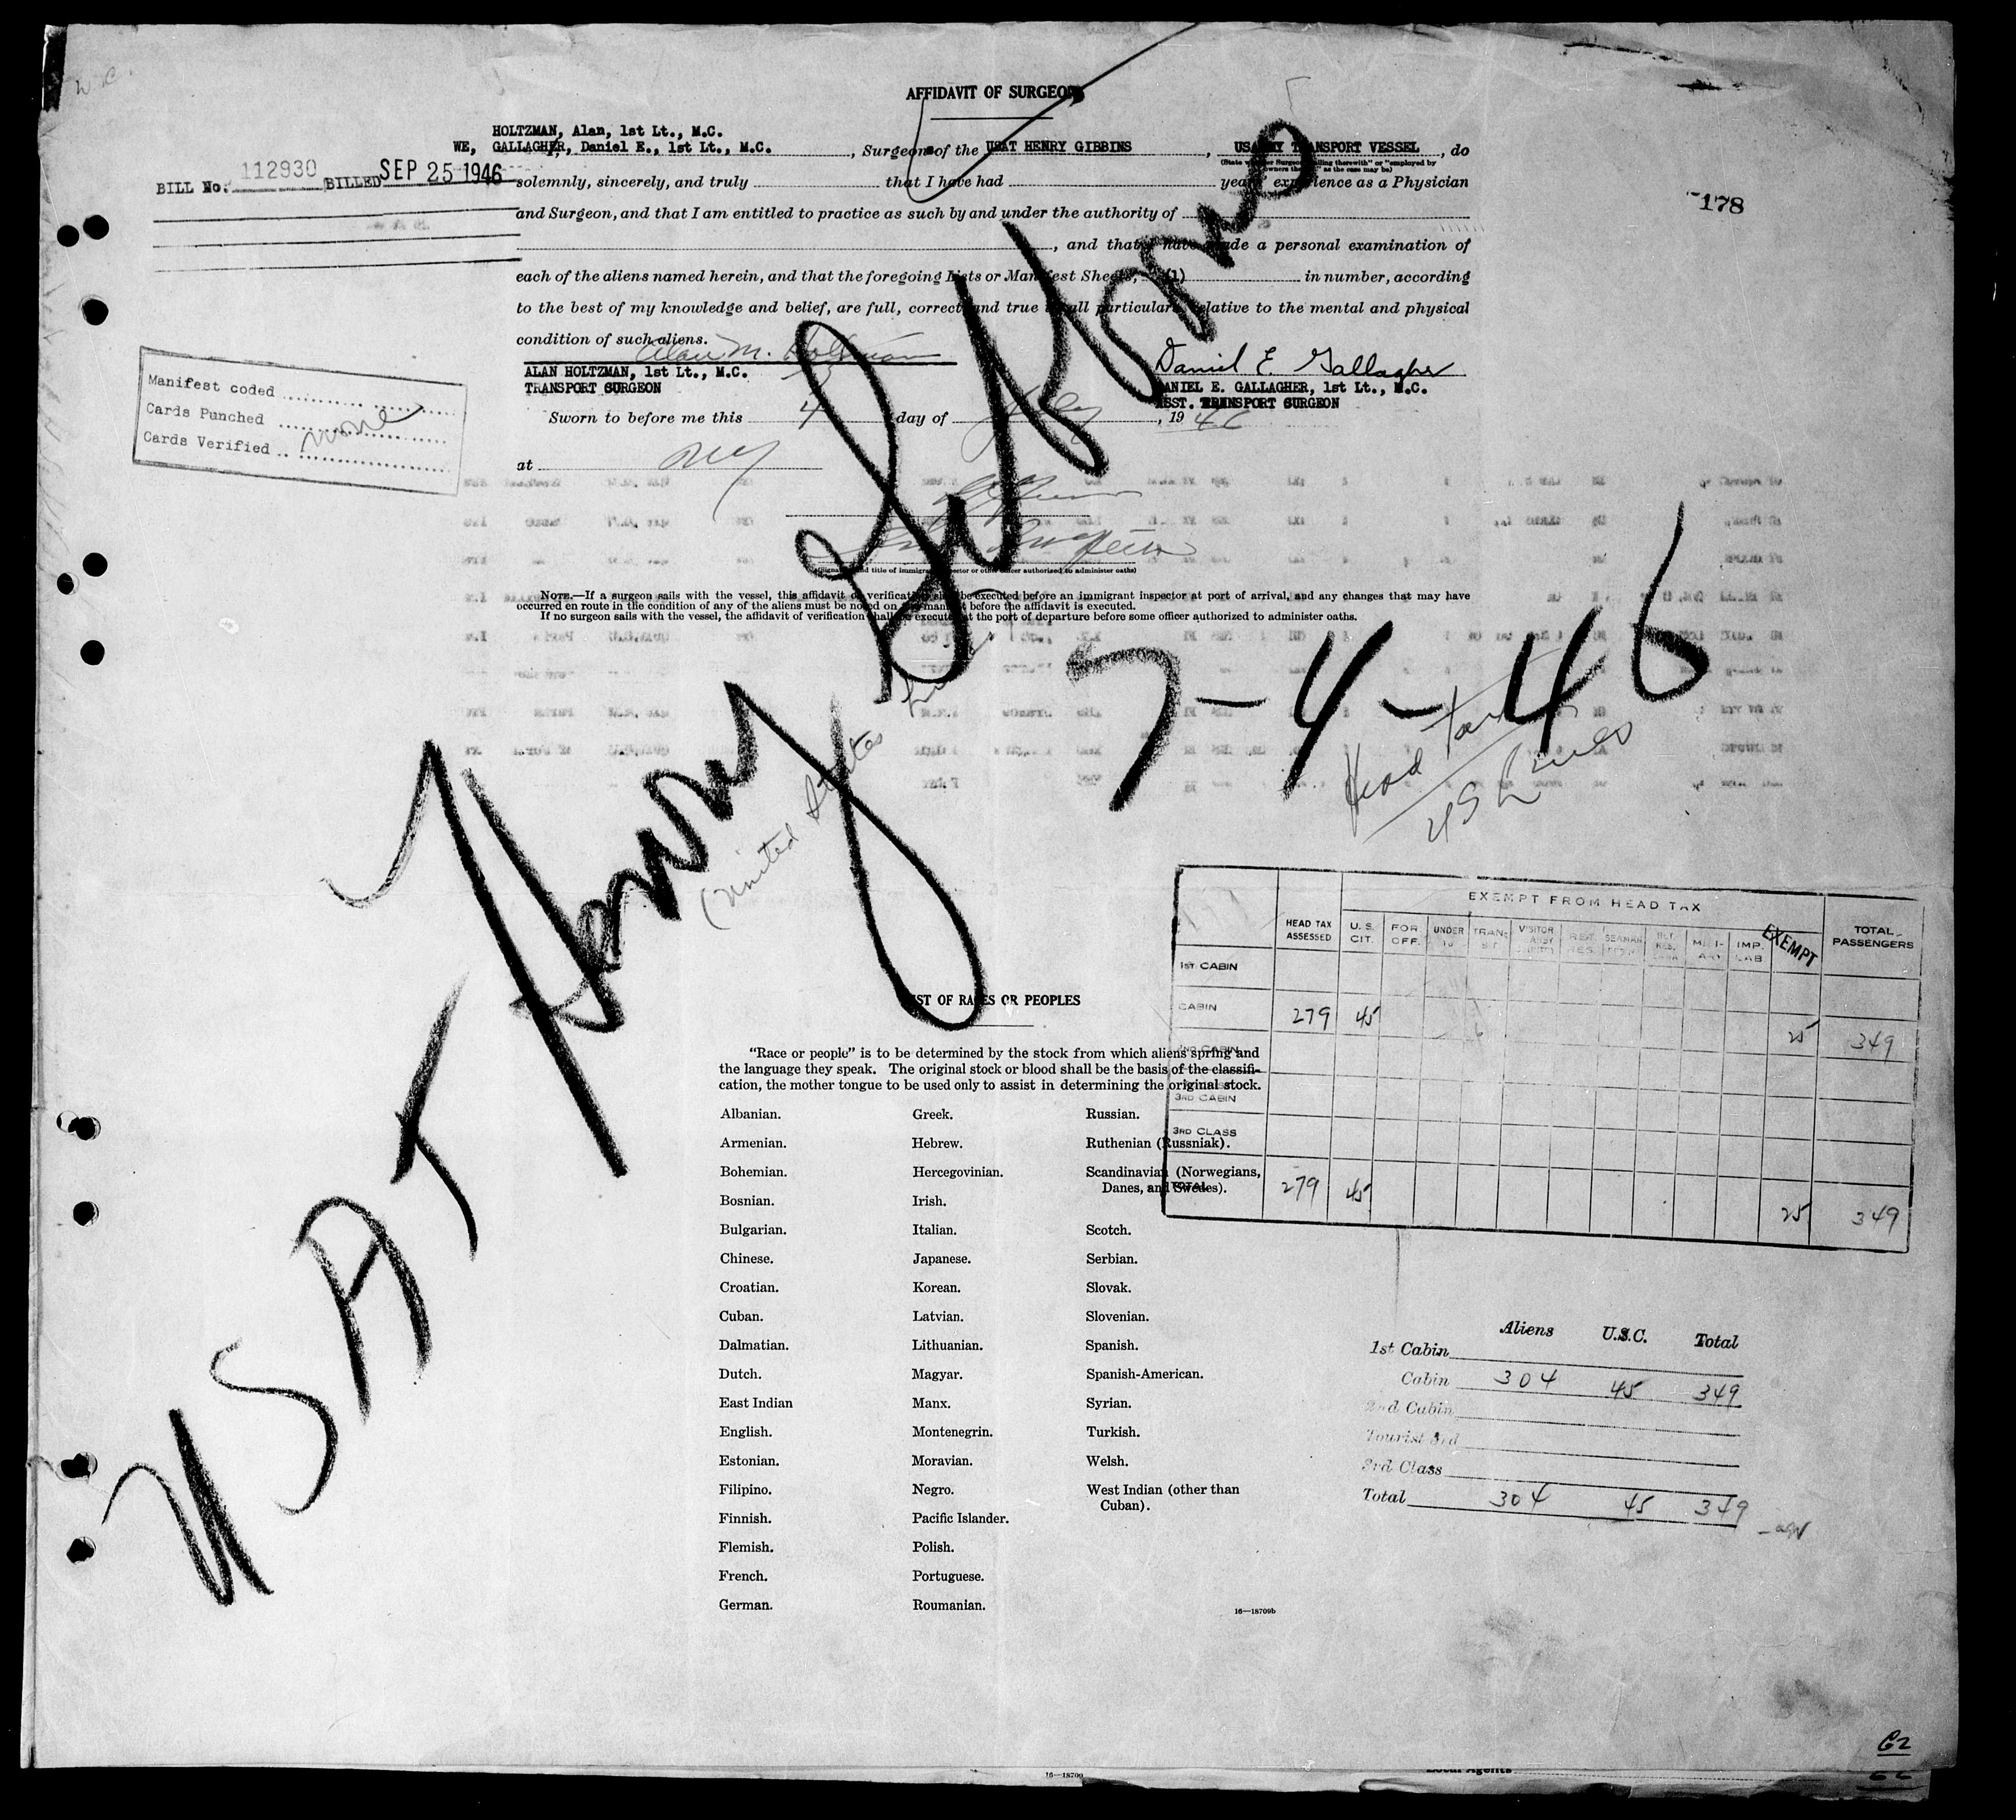 AFFIDAVIT OF SURGEON
HOLTZMAN, Alan, 1st Lt., M.C.
WE, GALLAGHER, Daniel E., 1st Lt., M.C. , Surgeon of the USAT HENRY GIBBINS , US ARMY TRANSPORT VESSEL , do
(State whether Surgeon sailing therewith" or "employed by
owners thereof" as the case may be)
BILL No. 112930 BILLED SEP 25 1946
solemnly, sincerely, and truly that I have had years experience as a Physician
178
and Surgeon, and that I am entitled to practice as such by and under the authority of
, and that I have made a personal examination of
each of the aliens named herein, and that the foregoing Lists or Manifest Sheets, (1) in number, according
to the best of my knowledge and belief, are full, correct and true in all particulars relative to the mental and physical
condition of such aliens.
Alan M. Holtzman
Daniel E Gallagher
ALAN HOLTZMAN, 1st Lt., M.C.
TRANSPORT SURGEON
DANIEL E. GALLAGHER, 1st Lt., M.C.
ASST. TRANSPORT SURGEON
Manifest coded
Cards Punched
Cards Verified
none
Sworn to before me this 4 day of July , 19 46
at NY
(Signature and title of immigrant inspector or other officer authorized to administer oaths)
NOTE.—If a surgeon sails with the vessel, this affidavit of verification shall be executed before an immigrant inspector at port of arrival, and any changes that may have
occurred en route in the condition of any of the aliens must be noted on the manifest before the affidavit is executed.
If no surgeon sails with the vessel, the affidavit of verification shall be executed at the port of departure before some officer authorized to administer oaths.
USAT Henry Gibbons
7-4-46
(United States Lines
Head tax
US Lines
HEAD TAX ASSESSED
EXEMPT FROM HEAD TAX
U.S. CIT. FOR OFF. UNDER 16 TRANSIT VISITOR SEAMAN IMP. LAB EXEMPT
TOTAL PASSENGERS
1ST CABIN
CABIN 279 45 25 349
2ND CABIN
3RD CABIN
3RD CLASS
TOTAL 279 45 25 349
LIST OF RACES OR PEOPLES
"Race or people" is to be determined by the stock from which aliens spring and
the language they speak. The original stock or blood shall be the basis of the classifi-
cation, the mother tongue to be used only to assist in determining the original stock.
Albanian. Greek. Russian.
Armenian. Hebrew. Ruthenian (Russniak).
Bohemian. Hercegovinian. Scandinavian (Norwegians,
Danes, and Swedes).
Bosnian. Irish.
Bulgarian. Italian. Scotch.
Chinese. Japanese. Serbian.
Croatian. Korean. Slovak.
Cuban. Latvian. Slovenian.
Dalmatian. Lithuanian. Spanish.
Dutch. Magyar. Spanish-American.
East Indian Manx. Syrian.
English. Montenegrin. Turkish.
Estonian. Moravian. Welsh.
Filipino. Negro. West Indian (other than
Cuban).
Finnish. Pacific Islander.
Flemish. Polish.
French. Portuguese.
German. Roumanian.
Aliens U.S.C. Total
1st Cabin
Cabin 304 45 349
2nd Cabin
Tourist 3rd
3rd Class
Total 304 45 349
16—18709b
62
16—18709
Local Agents